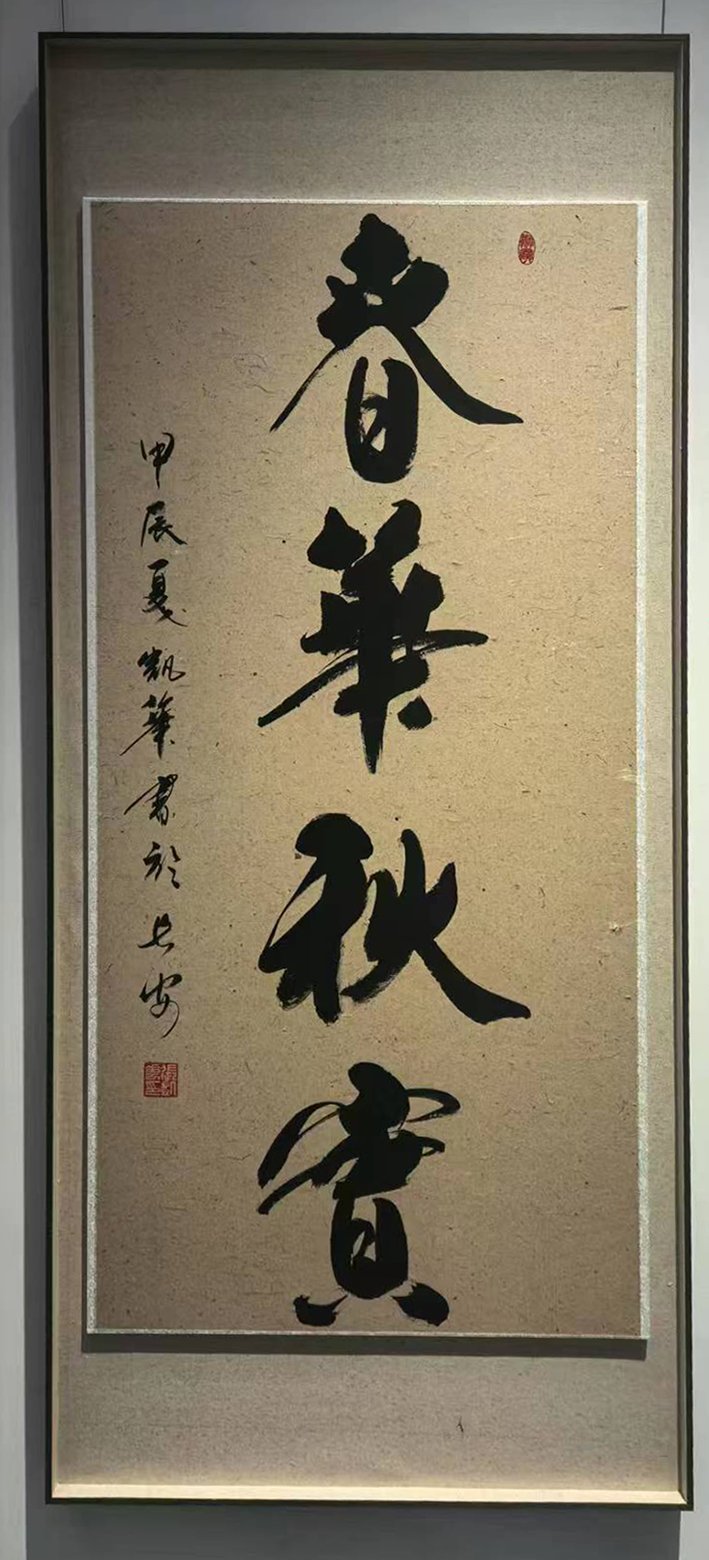 春華秋實
甲辰夏凱華書於長安